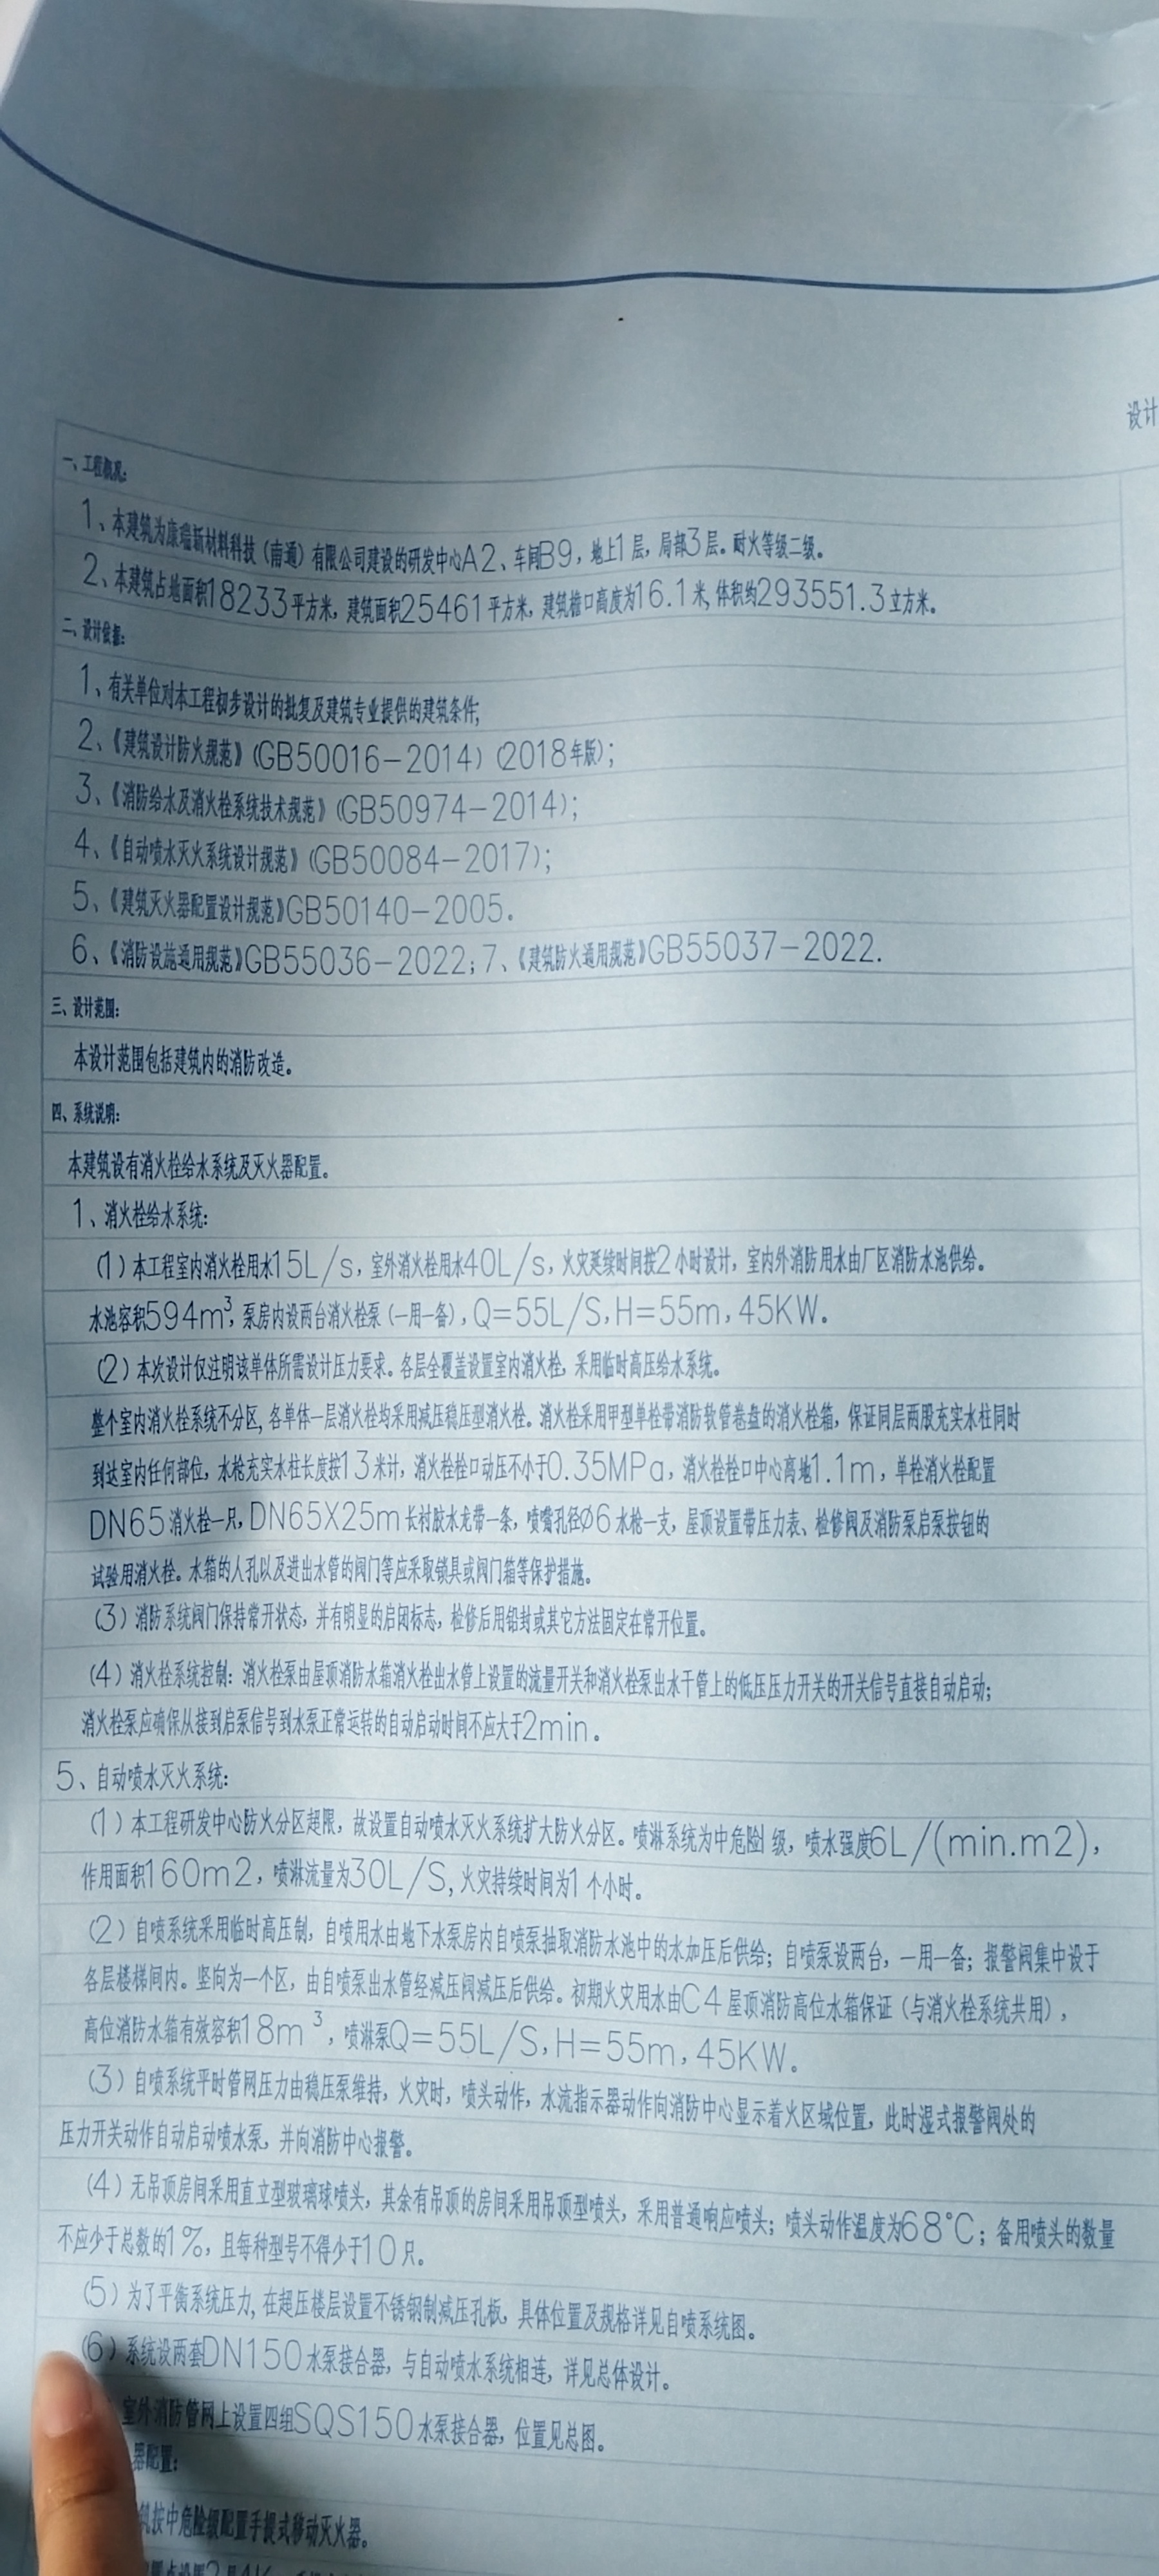 设计
一、工程概况:
1、本建筑为康瑞新材料科技（南通）有限公司建设的研发中心A2、车间B9，地上1层，局部3层。耐火等级二级。
2、本建筑占地面积18233平方米，建筑面积25461平方米，建筑檐口高度为16.1米，体积约293551.3立方米。
二、设计依据:
1、有关单位对本工程初步设计的批复及建筑专业提供的建筑条件;
2、《建筑设计防火规范》(GB50016-2014) (2018年版);
3、《消防给水及消火栓系统技术规范》(GB50974-2014);
4、《自动喷水灭火系统设计规范》(GB50084-2017);
5、《建筑灭火器配置设计规范》GB50140-2005.
6、《消防设施通用规范》GB55036-2022; 7、《建筑防火通用规范》GB55037-2022.
三、设计范围:
本设计范围包括建筑内的消防改造。
四、系统说明:
本建筑设有消火栓给水系统及灭火器配置。
1、消火栓给水系统:
(1) 本工程室内消火栓用水15L/s，室外消火栓用水40L/s，火灾延续时间按2小时设计，室内外消防用水由厂区消防水池供给。
水池容积594m³，泵房内设两台消火栓泵（一用一备），Q=55L/S，H=55m，45KW。
(2) 本次设计仅注明该单体所需设计压力要求。各层全覆盖设置室内消火栓，采用临时高压给水系统。
整个室内消火栓系统不分区，各单体一层消火栓均采用减压稳压型消火栓。消火栓采用甲型单栓带消防软管卷盘的消火栓箱，保证同层两股充实水柱同时
到达室内任何部位，水枪充实水柱长度按13米计，消火栓栓口动压不小于0.35MPa，消火栓栓口中心离地1.1m，单栓消火栓配置
DN65消火栓一只，DN65X25m长衬胶水龙带一条，喷嘴孔径Ø6水枪一支，屋顶设置带压力表、检修阀及消防泵启泵按钮的
试验用消火栓。水箱的人孔以及进出水管的阀门等应采取锁具或阀门箱等保护措施。
(3) 消防系统阀门保持常开状态，并有明显的启闭标志，检修后用铅封或其它方法固定在常开位置。
(4) 消火栓系统控制：消火栓泵由屋顶消防水箱消火栓出水管上设置的流量开关和消火栓泵出水干管上的低压压力开关的开关信号直接自动启动;
消火栓泵应确保从接到启泵信号到水泵正常运转的自动启动时间不应大于2min。
5、自动喷水灭火系统:
(1) 本工程研发中心防火分区超限，故设置自动喷水灭火系统扩大防火分区。喷淋系统为中危险I级，喷水强度6L/(min.m2)，
作用面积160m2，喷淋流量为30L/S，火灾持续时间为1个小时。
(2) 自喷系统采用临时高压制，自喷用水由地下水泵房内自喷泵抽取消防水池中的水加压后供给；自喷泵设两台，一用一备；报警阀集中设于
各层楼梯间内。竖向为一个区，由自喷泵出水管经减压阀减压后供给。初期火灾用水由C4屋顶消防高位水箱保证（与消火栓系统共用），
高位消防水箱有效容积18m³，喷淋泵Q=55L/S，H=55m，45KW。
(3) 自喷系统平时管网压力由稳压泵维持，火灾时，喷头动作，水流指示器动作向消防中心显示着火区域位置，此时湿式报警阀处的
压力开关动作自动启动喷水泵，并向消防中心报警。
(4) 无吊顶房间采用直立型玻璃球喷头，其余有吊顶的房间采用吊顶型喷头，采用普通响应喷头；喷头动作温度为68℃；备用喷头的数量
不应少于总数的1%，且每种型号不得少于10只。
(5) 为了平衡系统压力，在超压楼层设置不锈钢制减压孔板，具体位置及规格详见自喷系统图。
(6) 系统设两套DN150水泵接合器，与自动喷水系统相连，详见总体设计。
室外消防管网上设置四组SQS150水泵接合器，位置见总图。
器配置:
筑按中危险级配置手提式移动灭火器。